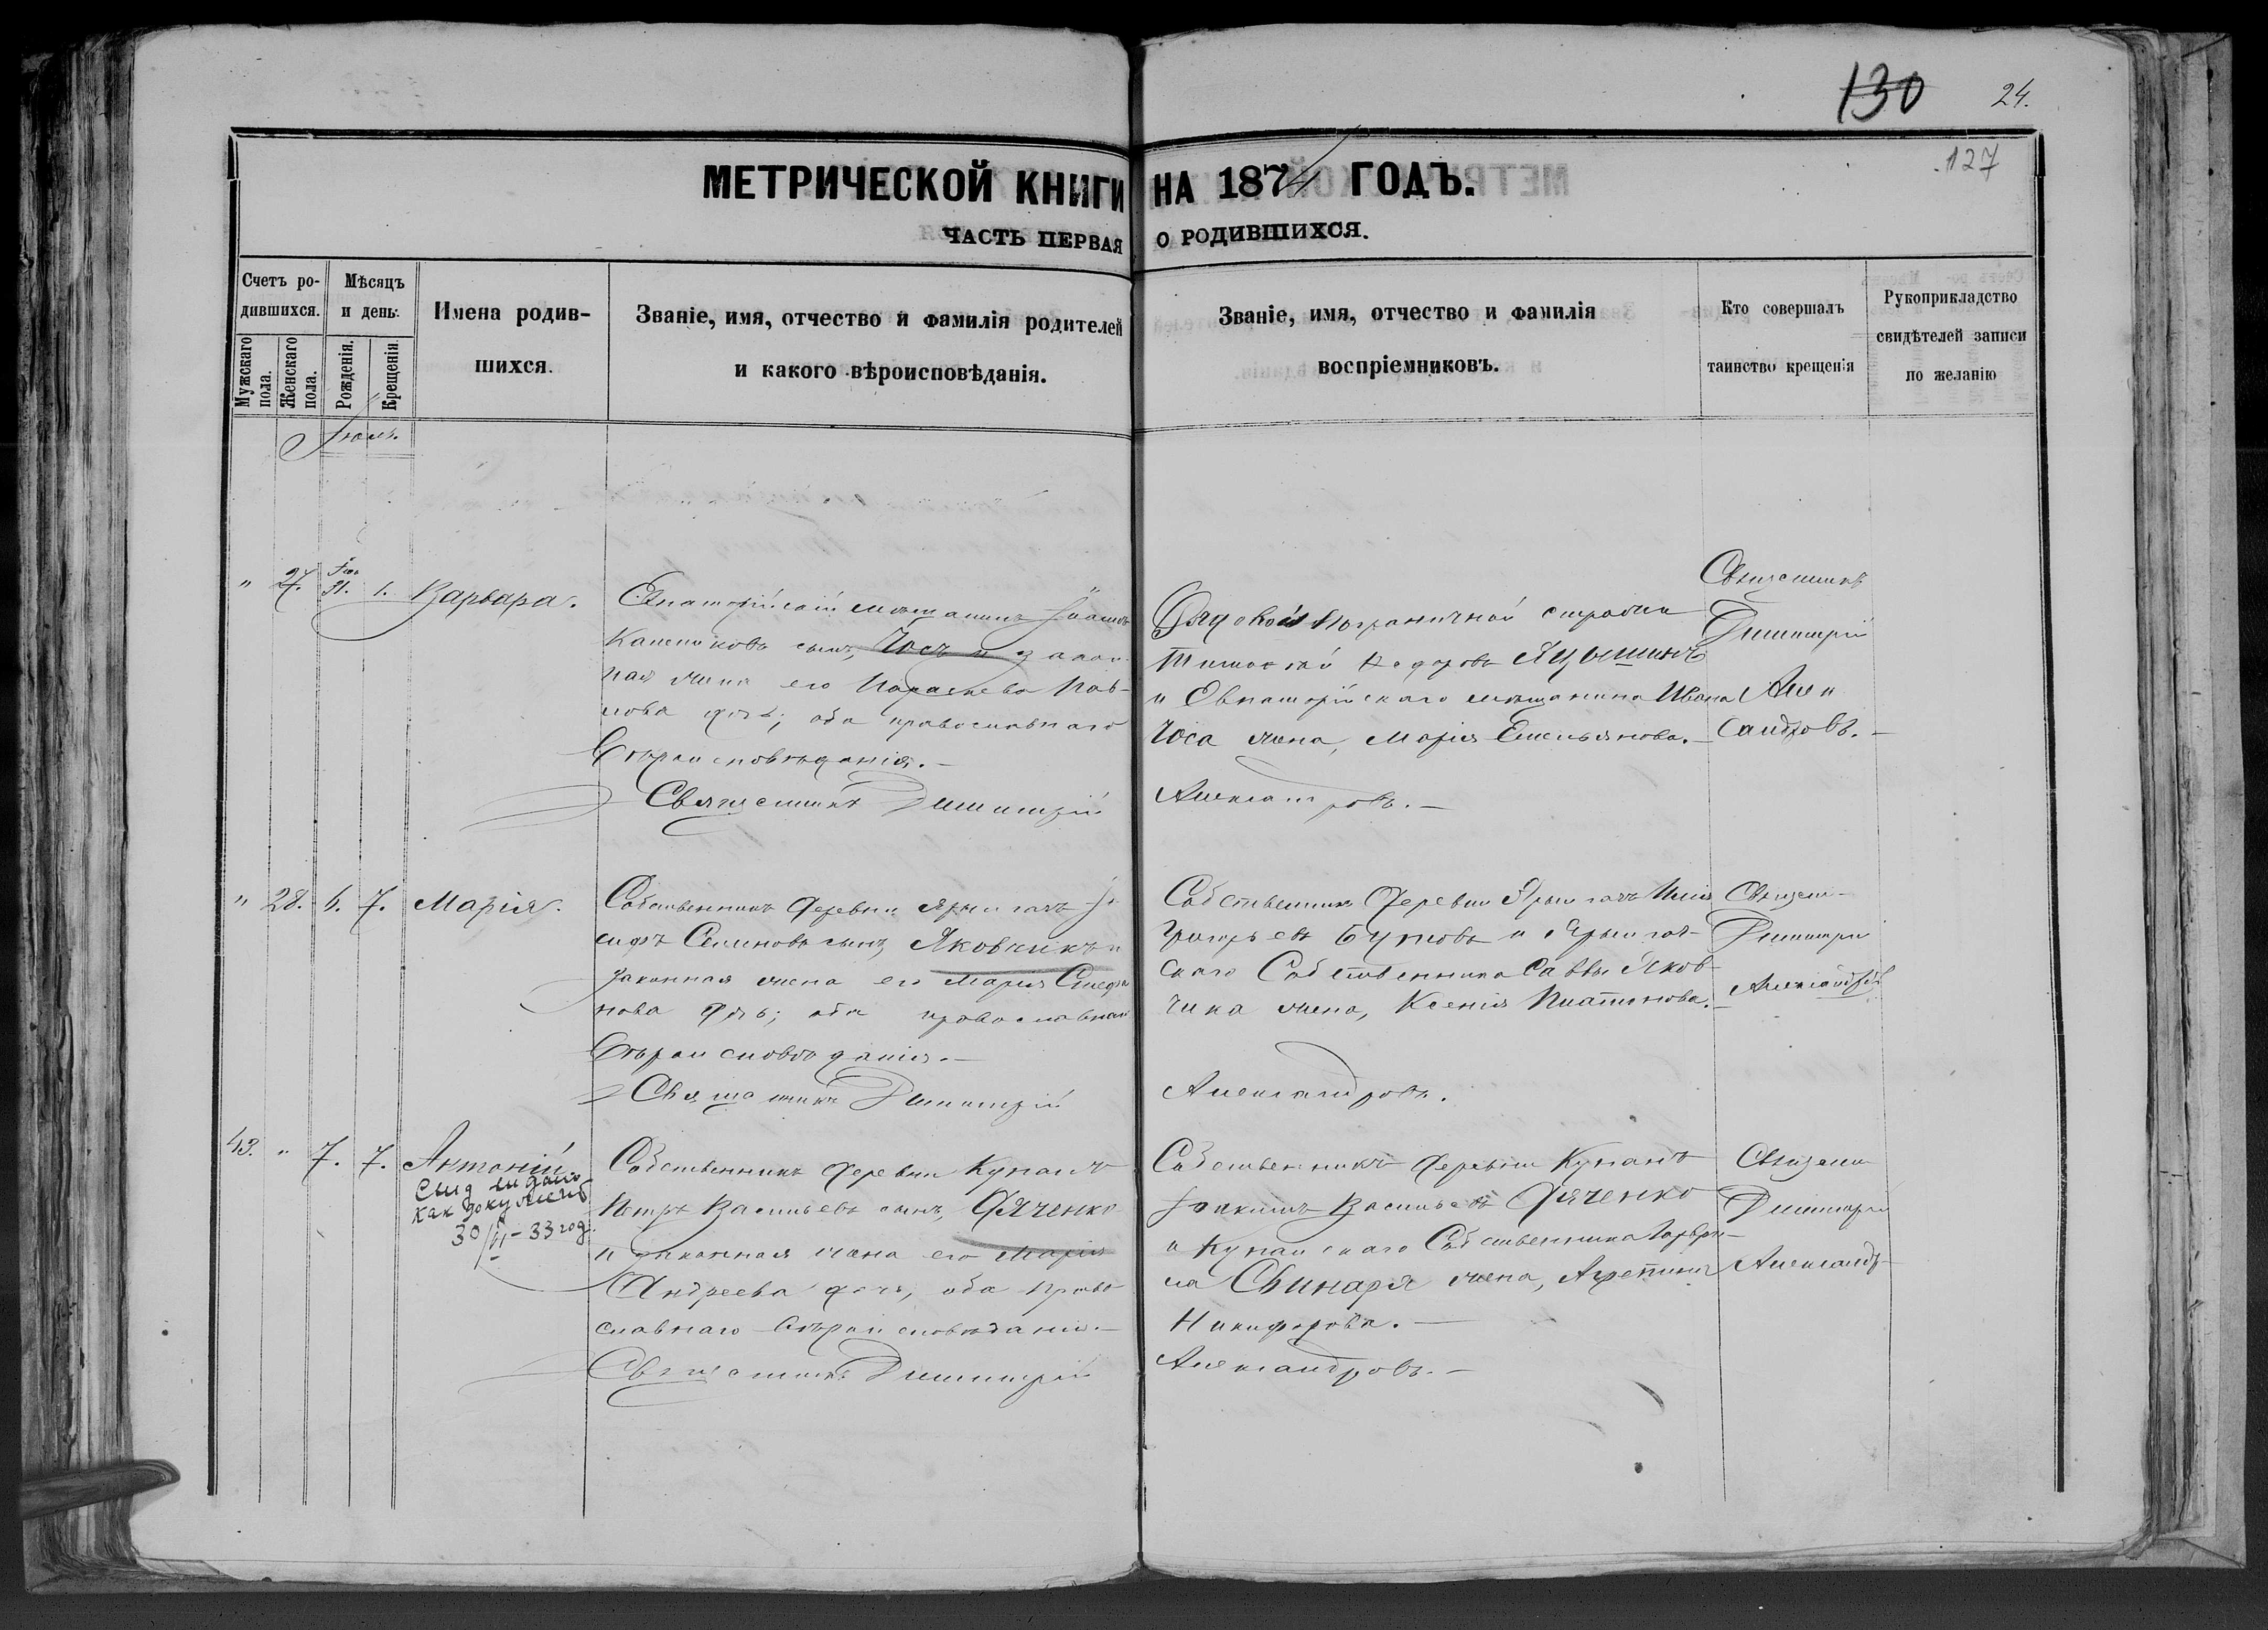 130 24.
127
МЕТРИЧЕСКОЙ КНИГИ НА 1874 ГОДЪ.
ЧАСТЬ ПЕРВАЯ О РОДИВШИХСЯ.
Счетъ ро-
дившихся.
Мужскаго пола.
Женскаго пола.
Мѣсяцъ
и день.
Рожденія.
Крещенія.
Имена родив-
шихся.
Званіе, имя, отчество и фамилія родителей
и какого вѣроисповѣданія.
Званіе, имя, отчество и фамилія
воспріемниковъ.
Кто совершалъ
таинство крещенія
Рукоприкладство
свидѣтелей записи
по желанію
" 27. 31. 1. Варвара.
Евпаторійскій мѣщанинъ
сынъ, Чосъ и закон-
ная жена его Параскева Пав-
лова дочь; оба православнаго
Вѣроисповѣданія.—
Священникъ Димитрій
Рядовой пограничной стражи
Тимофей Федоровъ
и Евпаторійскаго мѣщанина Ивана
Чоса жена, Марія Емельянова.—
Александровъ.—
Священникъ
Димитрій
Алек
сандровъ.—
" 28. 6. 7. Марія.
Собственникъ деревни Ярылгачъ Іо
сифъ Семиновъ сынъ, Яковчикъ и
законная жена его Марія Стефа
нова дочь; оба православнаго
Вѣроисповѣданія.—
Священникъ Димитрій
Собственникъ деревни Ярылгачъ
Григорьевъ Бутовъ и Ярылгач-
скаго Собственника Саввы Яков-
чика жена, Ксенія Платонова.—
Александровъ.
Священ-
Димитрій
Александровъ
43. " 7. 7. Антоній.
как документ
30/II-33 год.
Собственникъ деревни Кунанъ
Петръ Васильевъ сынъ, Дяченко
и законная жена его Марія
Андреева дочь, оба право
славнаго Вѣроисповѣданія.—
Священникъ Димитрій
Собственникъ деревни Кунанъ
Іоакимъ Васильевъ Дяченко
и Кунанскаго Собственника Гаври-
ла Свинаря жена, Агрепина
Никифорова.—
Александровъ.—
Священ
Димитрій
Александр-